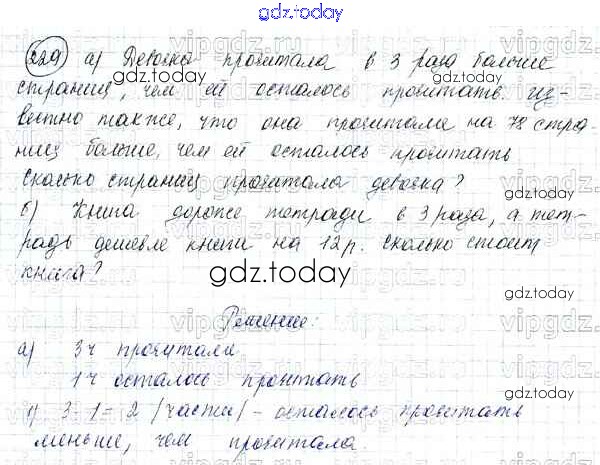 gdz.today
229 а) Девочка прочитала в 3 раза больше
gdz.today gdz.today
страниц, чем ей осталось прочитать. Из-
вестно также, что она прочитала на 78 стра-
ниц больше, чем ей осталось прочитать
Сколько страниц прочитала девочка?
gdz.today
б) Книга дороже тетради в 3 раза, а тет-
радь дешевле книги на 12 р. Сколько стоит
книга?
gdz.today
Решение:
gdz.today
а) 3ч прочитали
1ч осталось прочитать
gdz.today
1) 3-1=2 (части) - осталось прочитать
меньше, чем прочитала.
gdz.today